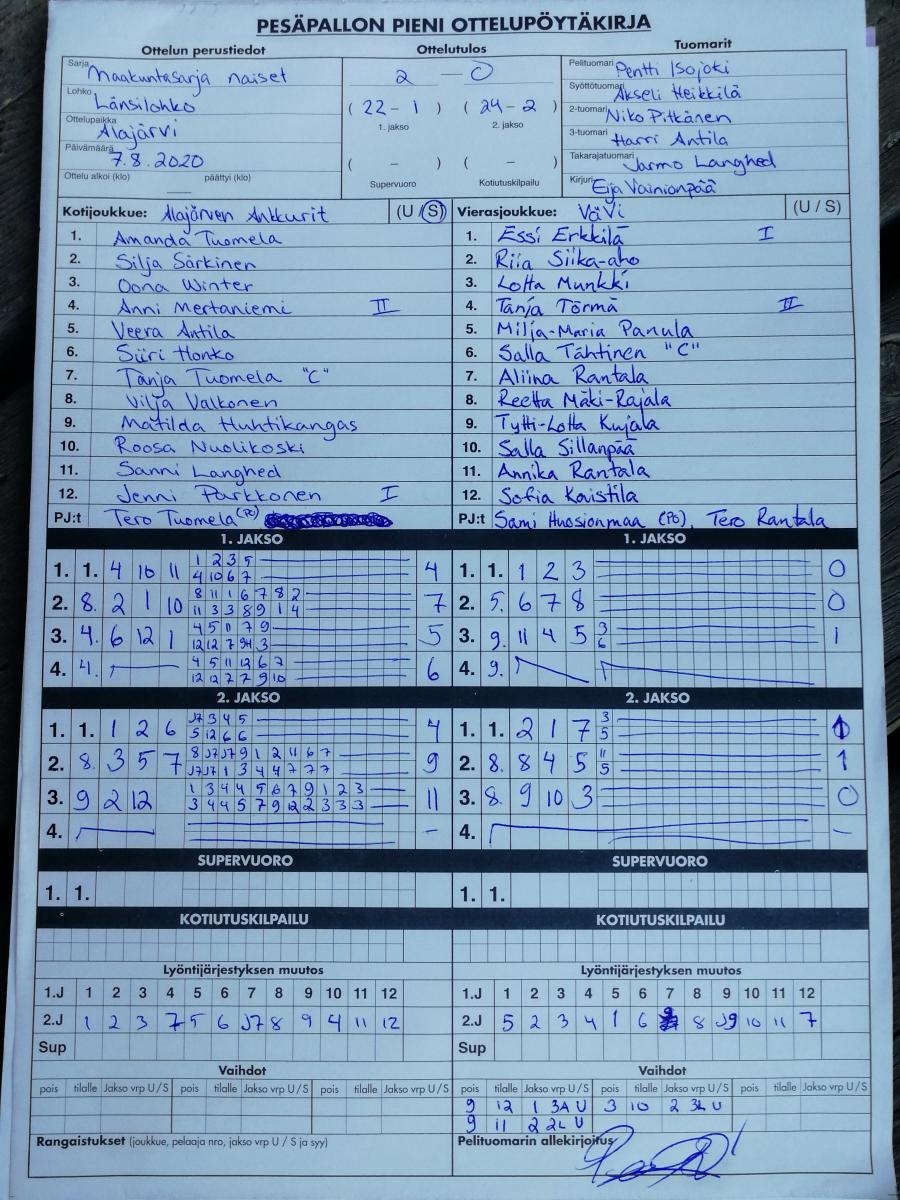 PESÄPALLON PIENI OTTELUPÖYTÄKIRJA
Ottelun perustiedot
Sarja Maakuntasarja naiset
Lohko Länsilohko
Ottelupaikka Alajärvi
Päivämäärä 7.8.2020
Ottelu alkoi (klo) päättyi (klo)
Ottelutulos
2 — 0
( 22 - 1 ) ( 24 - 2 )
1. jakso 2. jakso
( - ) ( - )
Supervuoro Kotiutuskilpailu
Tuomarit
Pelituomari Pentti Isojoki
Syöttötuomari Akseli Heikkilä
2-tuomari Niko Pitkänen
3-tuomari Harri Antila
Takarajatuomari Jarmo Langhed
Kirjuri Eija Vainionpää
Kotijoukkue: Alajärven Ankkurit (U / S)
1. Amanda Tuomela
2. Silja Särkinen
3. Oona Winter
4. Anni Mertaniemi II
5. Veera Antila
6. Siiri Honko
7. Tanja Tuomela "C"
8. Vilja Valkonen
9. Matilda Huhtikangas
10. Roosa Nuolikoski
11. Sanni Langhed
12. Jenni Parkkonen I
PJ:t Tero Tuomela (PO)
Vierasjoukkue: VäVi (U / S)
1. Essi Erkkilä I
2. Riia Siika-aho
3. Lotta Munkki
4. Tanja Törmä II
5. Milja-Maria Panula
6. Salla Tähtinen "C"
7. Aliina Rantala
8. Reetta Mäki-Rajala
9. Tytti-Lotta Kujala
10. Salla Sillanpää
11. Annika Rantala
12. Sofia Koistila
PJ:t Sami Huosionmaa (PO), Tero Rantala
1. JAKSO
1. 1. 4 10 11 1 2 3 5 4
4 10 6 7
2. 8. 2 1 10 8 11 1 6 7 8 2 7
11 3 3 8 9 1 4
3. 4. 6 12 1 4 5 11 7 9 5
12 12 7 3
4. 4. 4 5 11 12 6 7 6
12 12 7 7 9 10
1. JAKSO
1. 1. 1 2 3 0
2. 5. 6 7 8 0
3. 9. 11 4 5 3 1
6
4. 9.
2. JAKSO
1. 1. 1 2 6 J7 3 4 5 4
5 12 6 6
2. 8. 3 5 7 8 J7 J7 9 1 2 11 6 7 9
J7 J7 1 3 4 4 7 7 7
3. 9 2 12 1 3 4 4 5 6 7 9 1 2 3 11
3 4 4 5 7 9 12 2 3 3 3
4. -
2. JAKSO
1. 1. 2 1 7 3 1
5
2. 8. 8 4 5 11 1
5
3. 8. 9 10 3 0
4. -
SUPERVUORO
1. 1.
SUPERVUORO
1. 1.
KOTIUTUSKILPAILU
KOTIUTUSKILPAILU
Lyöntijärjestyksen muutos
1.J 1 2 3 4 5 6 7 8 9 10 11 12
2.J 1 2 3 7 5 6 J7 8 9 4 11 12
Sup
Lyöntijärjestyksen muutos
1.J 1 2 3 4 5 6 7 8 9 10 11 12
2.J 5 2 3 4 1 6 9 8 J9 10 11 7
Sup
Vaihdot
pois tilalle Jakso vrp U / S pois tilalle Jakso vrp U / S pois tilalle Jakso vrp U / S
Vaihdot
pois tilalle Jakso vrp U / S pois tilalle Jakso vrp U / S pois tilalle Jakso vrp U / S
9 12 1 3A U 3 10 2 3L U
9 11 2 2L U
Rangaistukset (joukkue, pelaaja nro, jakso vrp U / S ja syy)
Pelituomarin allekirjoitus